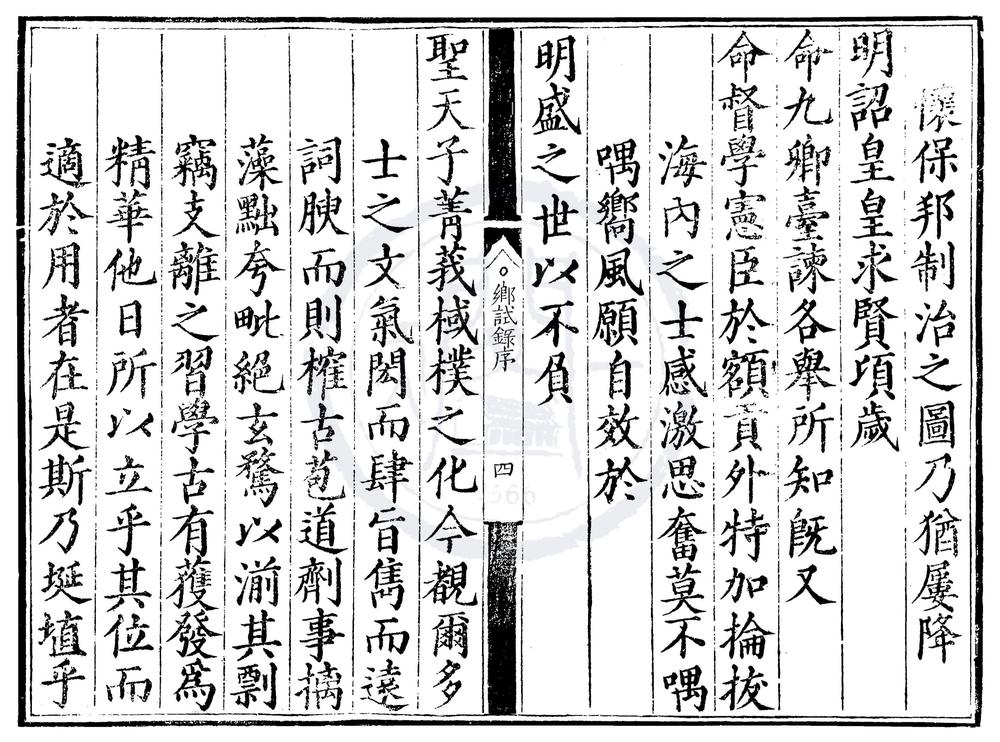 懷保邦制治之圖乃猶屢降
明詔皇皇求賢項歲
命九卿臺諫各舉所知既又
命督學憲臣於額貢外特加掄拔
海內之士感激思奮莫不喁
喁嚮風願自效於
明盛之世以不負
鄉試錄序 四
聖天子菁莪棫樸之化今觀爾多
士之文氣閎而肆旨雋而遠
詞腴而則榷古苞道劑事摛
藻黜夸毗絕玄騖以湔其剽
竊支離之習學古有獲發為
精華他日所以立乎其位而
適於用者在是斯乃埏埴乎